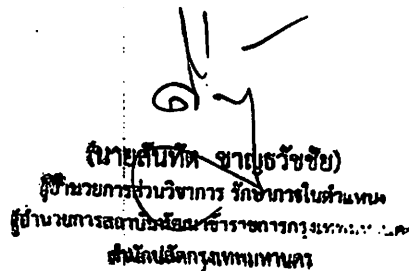 (นายสันทัต ชาญธวัชชัย)
ผู้อำนวยการส่วนวิชาการ รักษาการในตำแหน่ง
ผู้อำนวยการสถาบันพัฒนาข้าราชการกรุงเทพมหานคร
สำนักปลัดกรุงเทพมหานคร